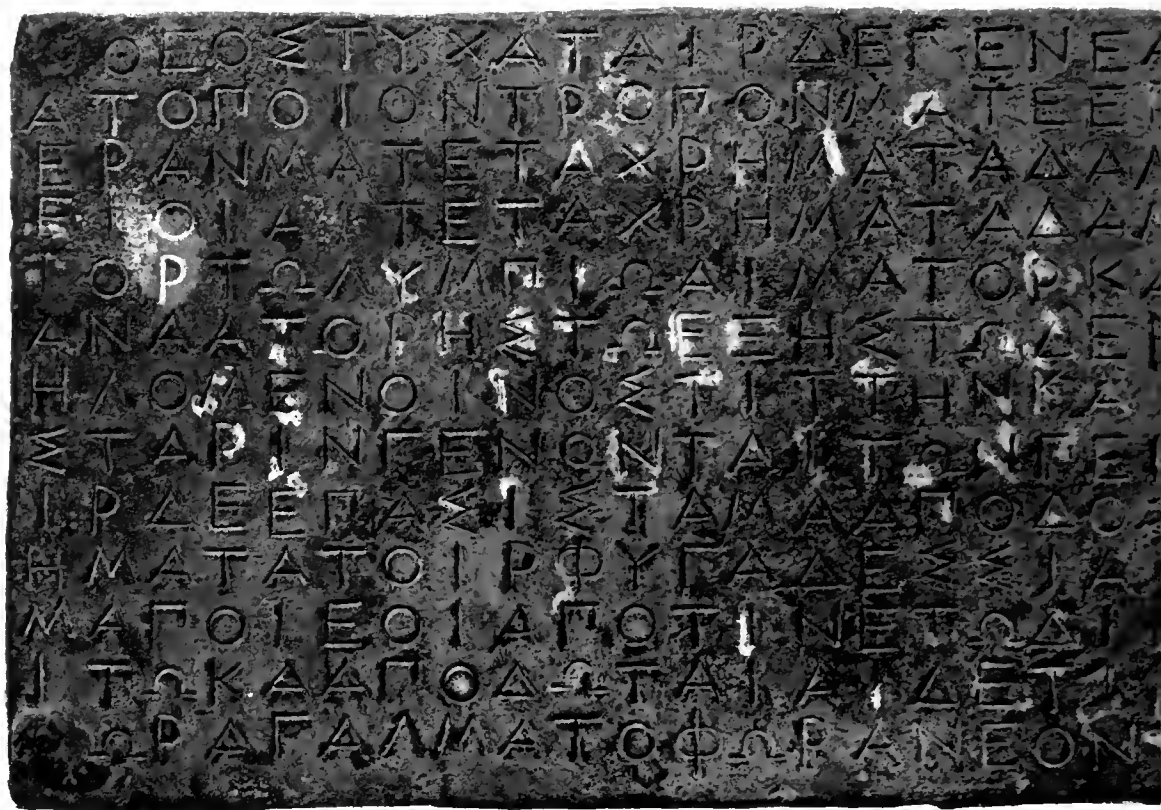 ΘΕΟΣΤΥΧΑΤΑΙΡΔΕΓΕΝΕΑ
ΑΤΟΠΟΙΟΝΤΡΟΠΟΝΜΑΤΕΕ
ΕΡΑΝΜΑΤΕΤΑΧΡΗΜΑΤΑΔΑΜ
ΕΙΟΙΑΙΤΕΤΑΧΡΗΜΑΤΑΔΑΜ
ΙΟΡΤΩΛΥΜΠΙΩΑΙΜΑΤΟΡΚΑ
ΑΝΑΑΤΟΡΗΣΤΩΕΞΗΣΤΩΔΕΚ
ΗΛΟΜΕΝΟΙΝΟΣΤΙΤΤΗΝΚΑ
ΣΤΑΡΙΝΓΕΝΩΝΤΑΙΤΩΝΠΕΡ
ΙΡΔΕΕΠΑΣΙΣΤΑΜΑΑΠΟΔΟΣ
ΗΜΑΤΑΤΟΙΡΦΥΓΑΔΕΣΣΙΑ
ΜΑΠΟΙΕΟΙΑΠΟΤΙΝΕΤΩΔΙ
ΙΤΩΚΑΑΠΟΔΩΤΑΙΑΙΔΕΤΙ
ΩΡΑΓΑΛΜΑΤΟΦΩΡΑΝΕΟΝ